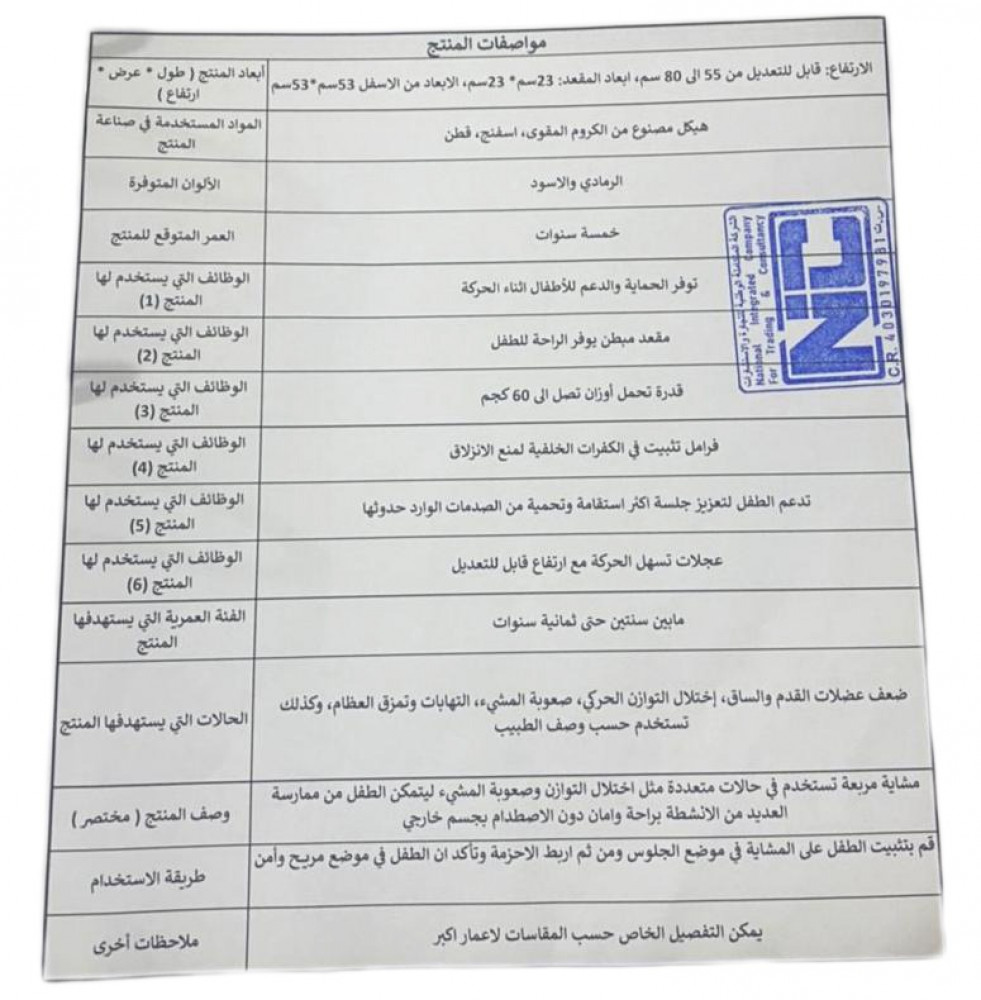 مواصفات المنتج
أبعاد المنتج ( طول * عرض *
ارتفاع )
الارتفاع: قابل للتعديل من 55 الى 80 سم، ابعاد المقعد: 23سم* 23سم، الابعاد من الاسفل 53سم*53سم
المواد المستخدمة في صناعة
المنتج
هيكل مصنوع من الكروم المقوى، اسفنج، قطن
الألوان المتوفرة
الرمادي والاسود
العمر المتوقع للمنتج
خمسة سنوات
الوظائف التي يستخدم لها
المنتج (1)
توفر الحماية والدعم للأطفال اثناء الحركة
الوظائف التي يستخدم لها
المنتج (2)
مقعد مبطن يوفر الراحة للطفل
الوظائف التي يستخدم لها
المنتج (3)
قدرة تحمل أوزان تصل الى 60 كجم
الوظائف التي يستخدم لها
المنتج (4)
فرامل تثبيت في الكفرات الخلفية لمنع الانزلاق
الوظائف التي يستخدم لها
المنتج (5)
تدعم الطفل لتعزيز جلسة اكثر استقامة وتحمية من الصدمات الوارد حدوثها
الوظائف التي يستخدم لها
المنتج (6)
عجلات تسهل الحركة مع ارتفاع قابل للتعديل
الفئة العمرية التي يستهدفها
المنتج
مابين سنتين حتى ثمانية سنوات
الحالات التي يستهدفها المنتج
ضعف عضلات القدم والساق، إختلال التوازن الحركي، صعوبة المشيء، التهابات وتمزق العظام، وكذلك
تستخدم حسب وصف الطبيب
وصف المنتج ( مختصر )
مشاية مربعة تستخدم في حالات متعددة مثل اختلال التوازن وصعوبة المشيء ليتمكن الطفل من ممارسة
العديد من الانشطة براحة وامان دون الاصطدام بجسم خارجي
طريقة الاستخدام
قم بتثبيت الطفل على المشاية في موضع الجلوس ومن ثم اربط الاحزمة وتأكد ان الطفل في موضع مريح وأمن
ملاحظات أخرى
يمكن التفصيل الخاص حسب المقاسات لاعمار اكبر
الشركة المتكاملة الوطنية للتجارة والاستشارات
National Integrated Company
For Trading & Consultancy
NIC
C.R. 4030197981